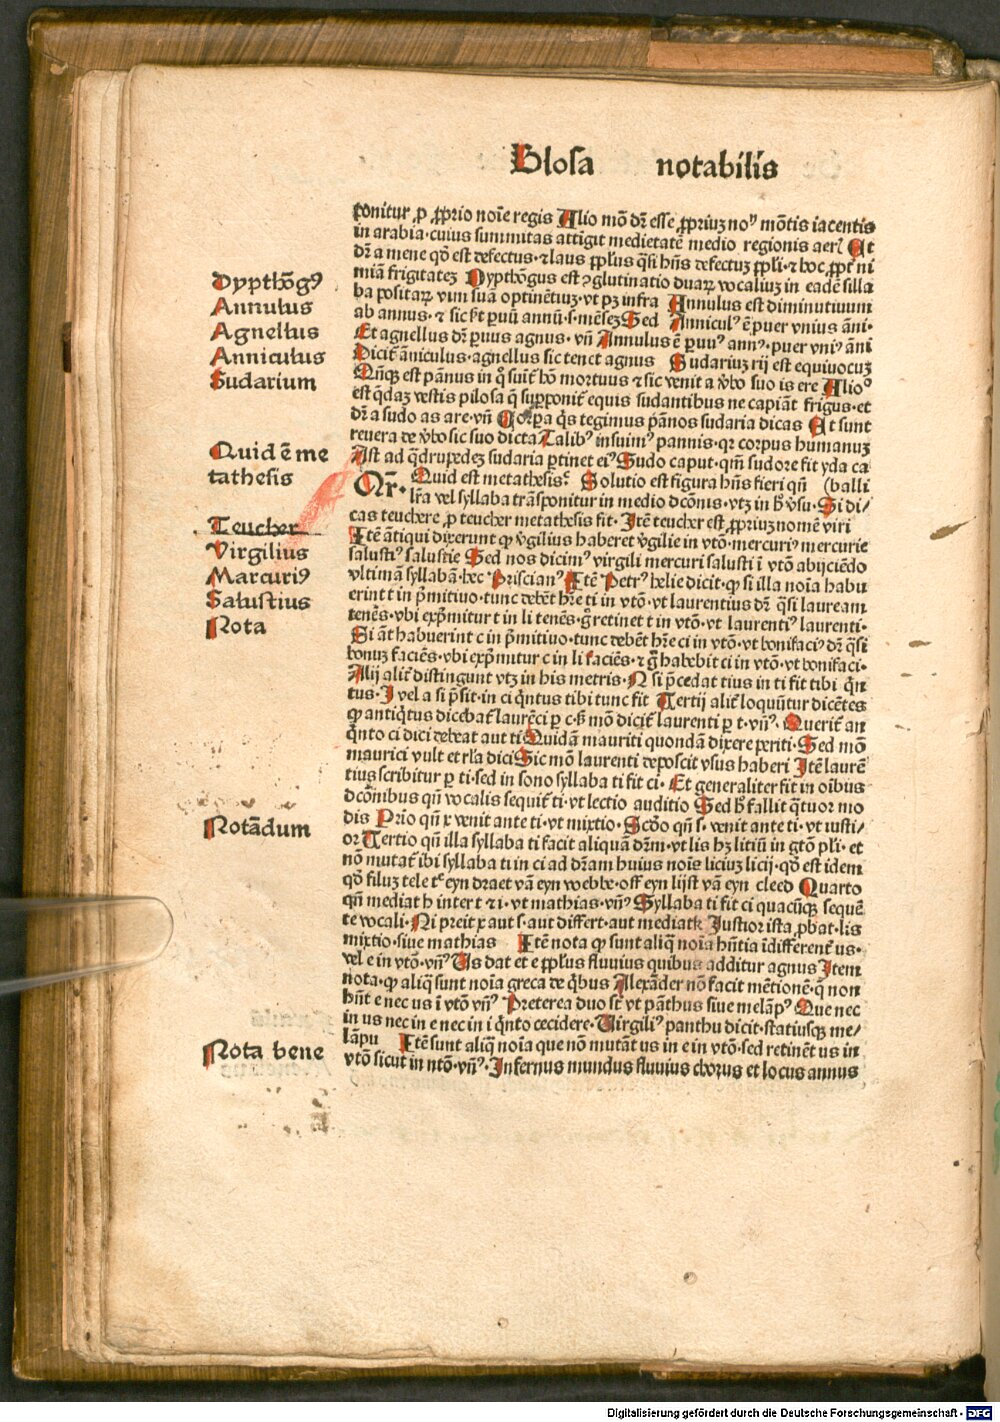 Glosa notabilis
ponitur ꝓ ꝓprio noīe regis Alio mō dr̄ esse ꝓpriuꝫ noꝰ mōtis iacentis
in arabia·cuius summitas attīgit medietatē medio regionis aeri At
dr̄ a mene qd̄ est defectus·⁊ laus ꝓplus q̄si hn̄s defectuꝫ ꝓpli·⁊ hoc ꝓpt̄ ni
Dypthōgꝰ
miā frigitateꝫ Dypthōgus est ꝯglutinatio duaꝝ vocaliuꝫ in eadē silla
Annulus
ba positaꝝ vim suā optinētiuꝫ·vt pꝫ infra Annulus est diminutiuum
Agnellus
ab annus·⁊ sic ſꝫt ꝑuū annū·s·mēseꝫ Sed Anniculꝰ ē puer vnius āni·
Et agnellus dr̄ ꝑuus agnus·vn̄ Annulus ē ꝑuuꝰ annꝰ·puer vniꝰ āni
Anniculus
Dicit̄ āniculus·agnellus sic tenet agnus Sudariuꝫ rij est equiuocuꝫ
Sudarium
Qn̄qꝫ est pānus in q̊ suit̄ hō mortuus ⁊ sic venit a v̄bo suo is ere Alioº
est q̄daꝫ vestis pilosa q̄ supponit̄ equis sudantibus ne capiāt frigus·et
dr̄ a sudo as are·vn̄ Corpa q̄s tegimus pānos sudaria dicas At sunt
reuera de v̄bo sic suo dicta Talibꝰ insuimꝰ pannis·qr corpus humanuꝫ
Quid ē me
Ast ad q̄drupedeꝫ sudaria ꝑtinet eiꝰ Sudo caput·qm̄ sudore fit yda ca
tathesis
Qr̄· Quid est metathesis? Solutio est figura hn̄s fieri qn̄ (balli
lr̄a vel syllaba trāsponitur in medio dcōnis·vtꝫ in h̄ v̄su·Si di/
Teucher
cas teuchere ꝓ teucher metathesis fit·Itē teucher est ꝓpriuꝫ nomē viri
Virgilius
Itē ātiqui dixerunt ꝙ v̄gilius haberet v̄gilie in vtō·mercuriꝰ mercurie
salustiꝰ salustie Sed nos dicimꝰ virgili mercuri salusti ī vtō abijciēdo
Marcuriꝰ
vltimā syllabā·hec Priscianꝰ Itē Petrꝰ helie dicit·ꝙ si illa noīa habu
Salustius
erint t in p̄mitiuo·tunc debēt hr̄e ti in vtō·vt laurentius dr̄ q̄si lauream
Nota
tenēs·vbi exp̄mitur t in li tenēs·ḡ retinet t in vtō·vt laurentiꝰ laurenti·
Si āt habuerint c in p̄mitiuo·tunc debēt hr̄e ci in vtō·vt bonifaciꝰ dr̄ q̄si
bonuꝫ faciēs·vbi exp̄mitur c in li faciēs·⁊ ḡ habebit ci in vtō·vt bonifaci·
Alij alit̄ distingunt vtꝫ in his metris·N si p̄cedat tius in ti fit tibi q̄n
tus·I vel a si p̄sit·in ci q̄ntus tibi tunc fit Tertij alit̄ loquūtur dicētes
ꝙ antiq̄tus dicebat̄ laurēci ꝑ c·ſꝫ mō dicit̄ laurenti ꝑ t·vn̄ꝰ·Querit̄ an
q̄nto ci dici debeat aut ti Quidā mauriti quondā dixere periti·Sed mō
maurici vult et rl̄a dici Sic mō laurenti deposcit vsus haberi Itē laurē
tius scribitur ꝑ ti·sed in sono syllaba ti fit ci· Et generaliter fit in oībus
dcōnibus qn̄ vocalis sequit̄ ti·vt lectio auditio Sed h̄ fallit q̄tuor mo
Notādum
dis Prio qn̄ x venit ante ti·vt mixtio·Scd̄o qn̄ s·venit ante ti·vt iusti/
or Tertio qn̄ illa syllaba ti facit aliquā dr̄m·vt lis hꝫ litiū in gtō pli·et
nō mutat̄ ibi syllaba ti in ci ad dr̄am huius noīs liciuꝫ licij·qd̄ est idem
qd̄ filuꝫ tele tc̄ eyn draet vā eyn webbe·off eyn lijst vā eyn cleed Quarto
qn̄ mediat h inter t ⁊ i·vt mathias·vn̄ꝰ Syllaba ti fit ci quacūqꝫ sequē
te vocali·Ni preit x aut s·aut differt·aut mediatk Justior ista ꝓbat·lis
mixtio·siue mathias Itē nota ꝙ sunt aliq̄ noīa hn̄tia īdifferent̄ us·
vel e in vtō·vn̄ꝰ Us dat et e ꝓplus fluuius quibus additur agnus Item
nota·ꝙ aliq̄ sunt noīa greca de q̄bus Alexāder nō facit mētionē·q̄ non
hn̄t e nec us ī vtō vn̄ꝰ Preterea duo st̄ vt pāthus siue melāpꝰ Que nec
in us nec in e nec in i q̄nto cecidere·Uirgiliꝰ panthu dicit·statiusqꝫ me/
Nota bene
lāpu Itē sunt aliq̄ noīa que nō mutāt us in e in vtō·sed retinēt us in
vtō sicut in ntō·vn̄ꝰ·Infernus mundus fluuius chorus et locus annus
Digitalisierung gefördert durch die Deutsche Forschungsgemeinschaft - DFG